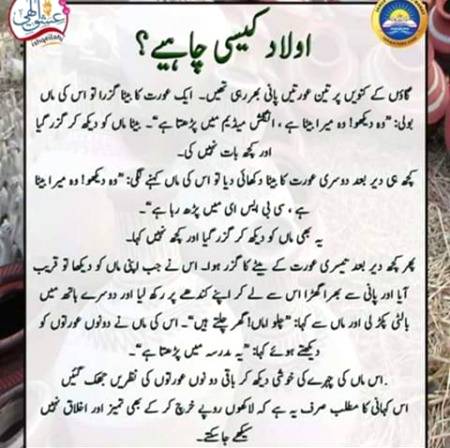 عشق الٰہی
ishqeilahi
اولاد کیسی چاہیے؟
گاؤں کے کنویں پر تین عورتیں پانی بھر رہی تھیں۔ ایک عورت کا بیٹا گزرا تو اس کی ماں
بولی: ”وہ دیکھو! وہ میرا بیٹا ہے، انگلش میڈیم میں پڑھتا ہے“۔ بیٹا ماں کو دیکھ کر گزر گیا
اور کچھ بات نہیں کی۔
کچھ ہی دیر بعد دوسری عورت کا بیٹا دکھائی دیا تو اس کی ماں کہنے لگی: ”وہ دیکھو! وہ میرا بیٹا
ہے، سی بی ایس ای میں پڑھ رہا ہے“۔
یہ بھی ماں کو دیکھ کر گزر گیا اور کچھ نہیں کہا۔
پھر کچھ دیر بعد تیسری عورت کے بیٹے کا گزر ہوا۔ اس نے جب اپنی ماں کو دیکھا تو قریب
آیا اور پانی سے بھرا گھڑا اس سے لے کر اپنے کندھے پر رکھ لیا اور دوسرے ہاتھ میں
بالٹی پکڑ لی اور ماں سے کہا: ”چلو اماں! گھر چلتے ہیں“۔ اس کی ماں نے دونوں عورتوں کو
دیکھتے ہوئے کہا: ”یہ مدرسہ میں پڑھتا ہے“۔
.اس ماں کی چہرے کی خوشی دیکھ کر باقی دونوں عورتوں کی نظریں جھک گئیں
اس کہانی کا مطلب صرف یہ ہے کہ لاکھوں روپے خرچ کر کے بھی تمیز اور اخلاق نہیں
سیکھے جا سکتے۔